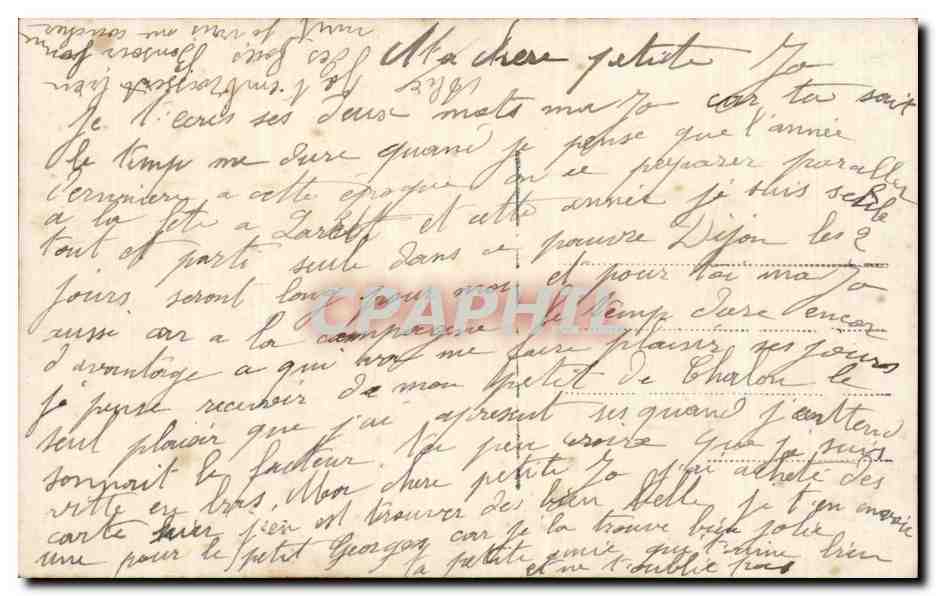 Ma chere petite Jo
je t'ecris ses deux mots ma Jo car tu sait
le temp me dure quand je pense que l'année
derniere a cette époque on ce preparer par aller
a la fête a et cette année je suis seule
tout et parti seule dans ce pauvre Dijon les 2
jours seront long pour moi et pour toi ma Jo
aussi car a la campagne le temp dure encor
d'avantage a qui me faire plaisir ses jours
je pense recevoir de mon petit de Chalon le
seul plaisir que j'ai apresent ses quand j'entend
sonnait le facteur tu peu croire que je suis
vitte en bas. Mon chere petite Jo j'ai acheté des
carte hier j'en est trouver des bien belle je t'en envoie
une pour le petit Georges car je la trouve bien jolie
ta petite amie qui t'aime bien
et ne t'oublie pas
CPARHIL